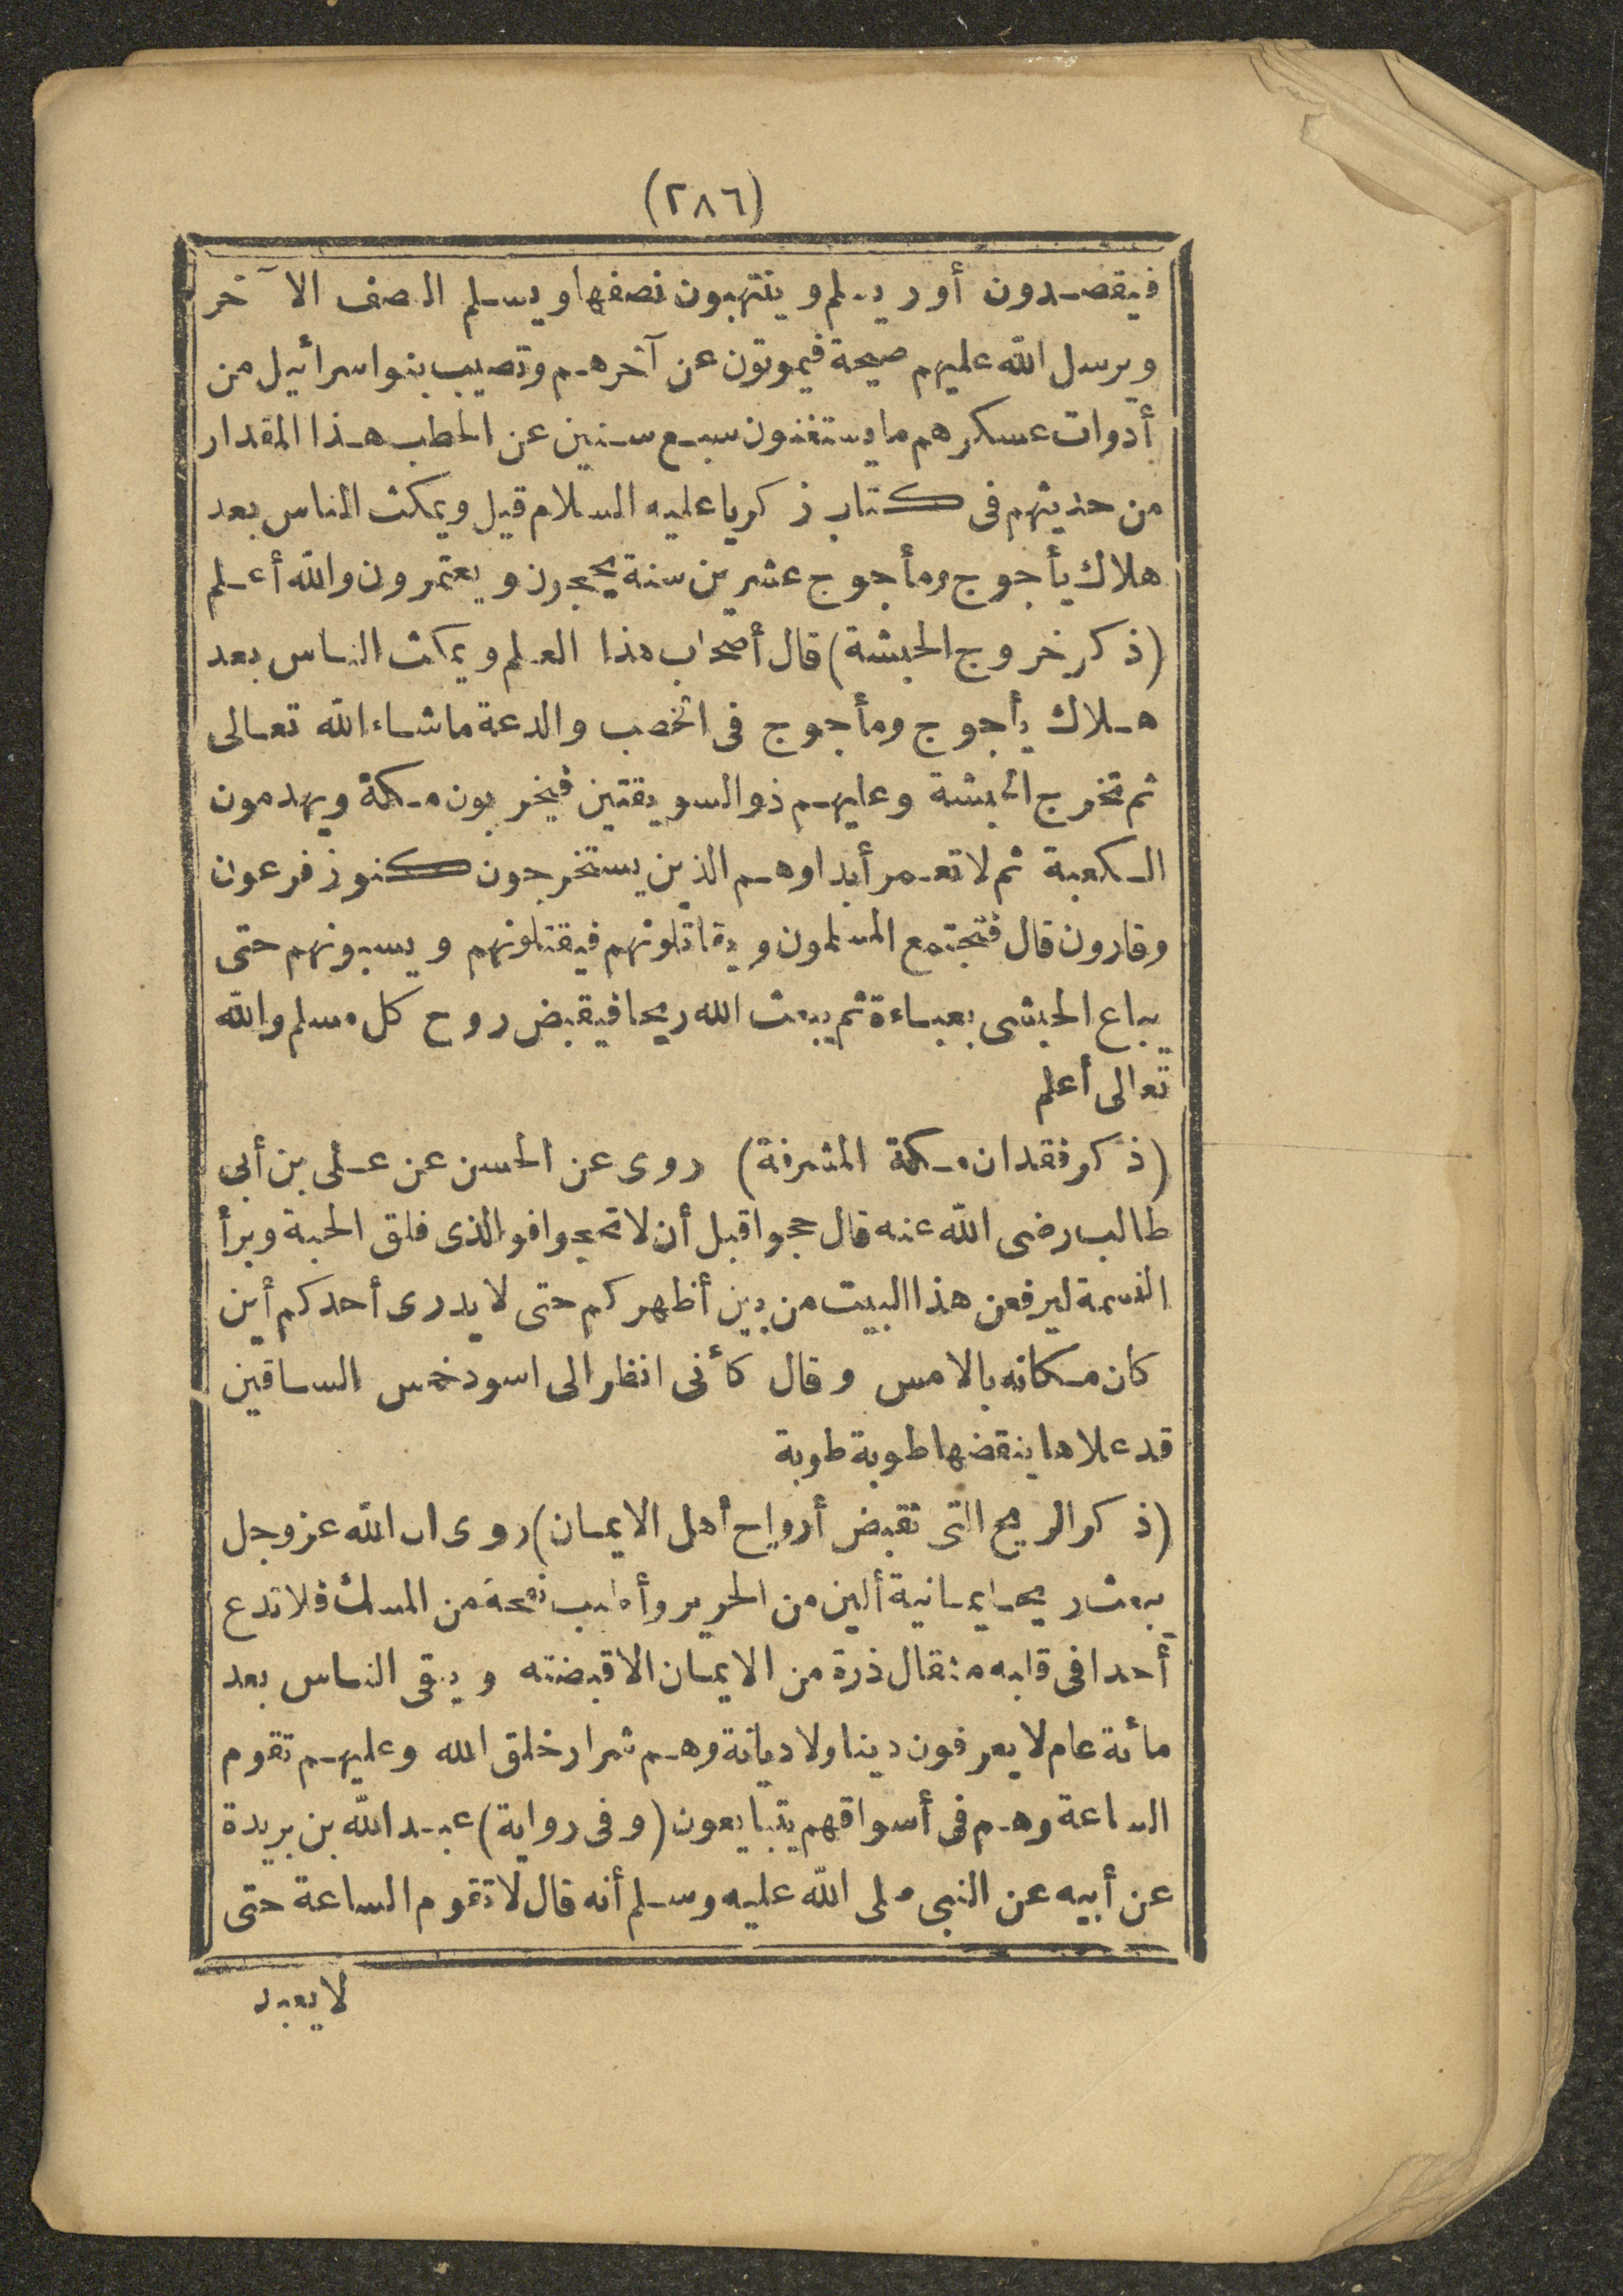 (٢٨٦)
فيقصدون أوريلم وينتهبون نصفها ويسلم النصف الآخر
ويرسل الله عليهم صيحة فيموتون عن آخرهم وتصيب بنو اسرائيل من
أدوات عسكرهم ما يستغنون سبع سنين عن الحطب هذا المقدار
من حديثهم فى كتاب زكريا عليه السلام قيل ويمكث الناس بعد
هلاك يأجوج ومأجوج عشرين سنة يحجون ويعتمرون والله أعلم
(ذكر خروج الحبشة) قال أصحاب هذا العلم ويمكث الناس بعد
هلاك يأجوج ومأجوج فى الخصب والدعة ما شاء الله تعالى
ثم تخرج الحبشة وعليهم ذو السويقتين فيخربون مكة ويهدمون
الكعبة ثم لا تعمر أبدا وهم الذين يستخرجون كنوز فرعون
وقارون قال فتجتمع المسلمون ويقاتلونهم فيقتلونهم ويسبونهم حتى
يباع الحبشى بعباءة ثم يبعث الله ريحا فيقبض روح كل مسلم والله
تعالى أعلم
(ذكر فقدان مكة المشرفة) روى عن الحسن عن على بن أبى
طالب رضى الله عنه قال حجوا قبل أن لا تحجوا فو الذى فلق الحبة وبرأ
النسمة ليرفعن هذا البيت من بين أظهركم حتى لا يدرى أحدكم أين
كان مكانه بالامس وقال كأنى انظر الى اسود خمس الساقين
قد علاها ينقضها طوبة طوبة
(ذكر الريح التى تقبض أرواح أهل الايمان) روى ان الله عز وجل
يبعث ريحا يمانية ألين من الحرير وأطيب نفحة من المسك فلا تدع
أحدا فى قلبه مثقال ذرة من الايمان الا قبضته ويبقى الناس بعد
مائة عام لا يعرفون دينا ولا ديانة وهم شرار خلق الله وعليهم تقوم
الساعة وهم فى أسواقهم يتبايعون (وفى رواية) عبد الله بن بريدة
عن أبيه عن النبى صلى الله عليه وسلم أنه قال لا تقوم الساعة حتى
لا يعبد